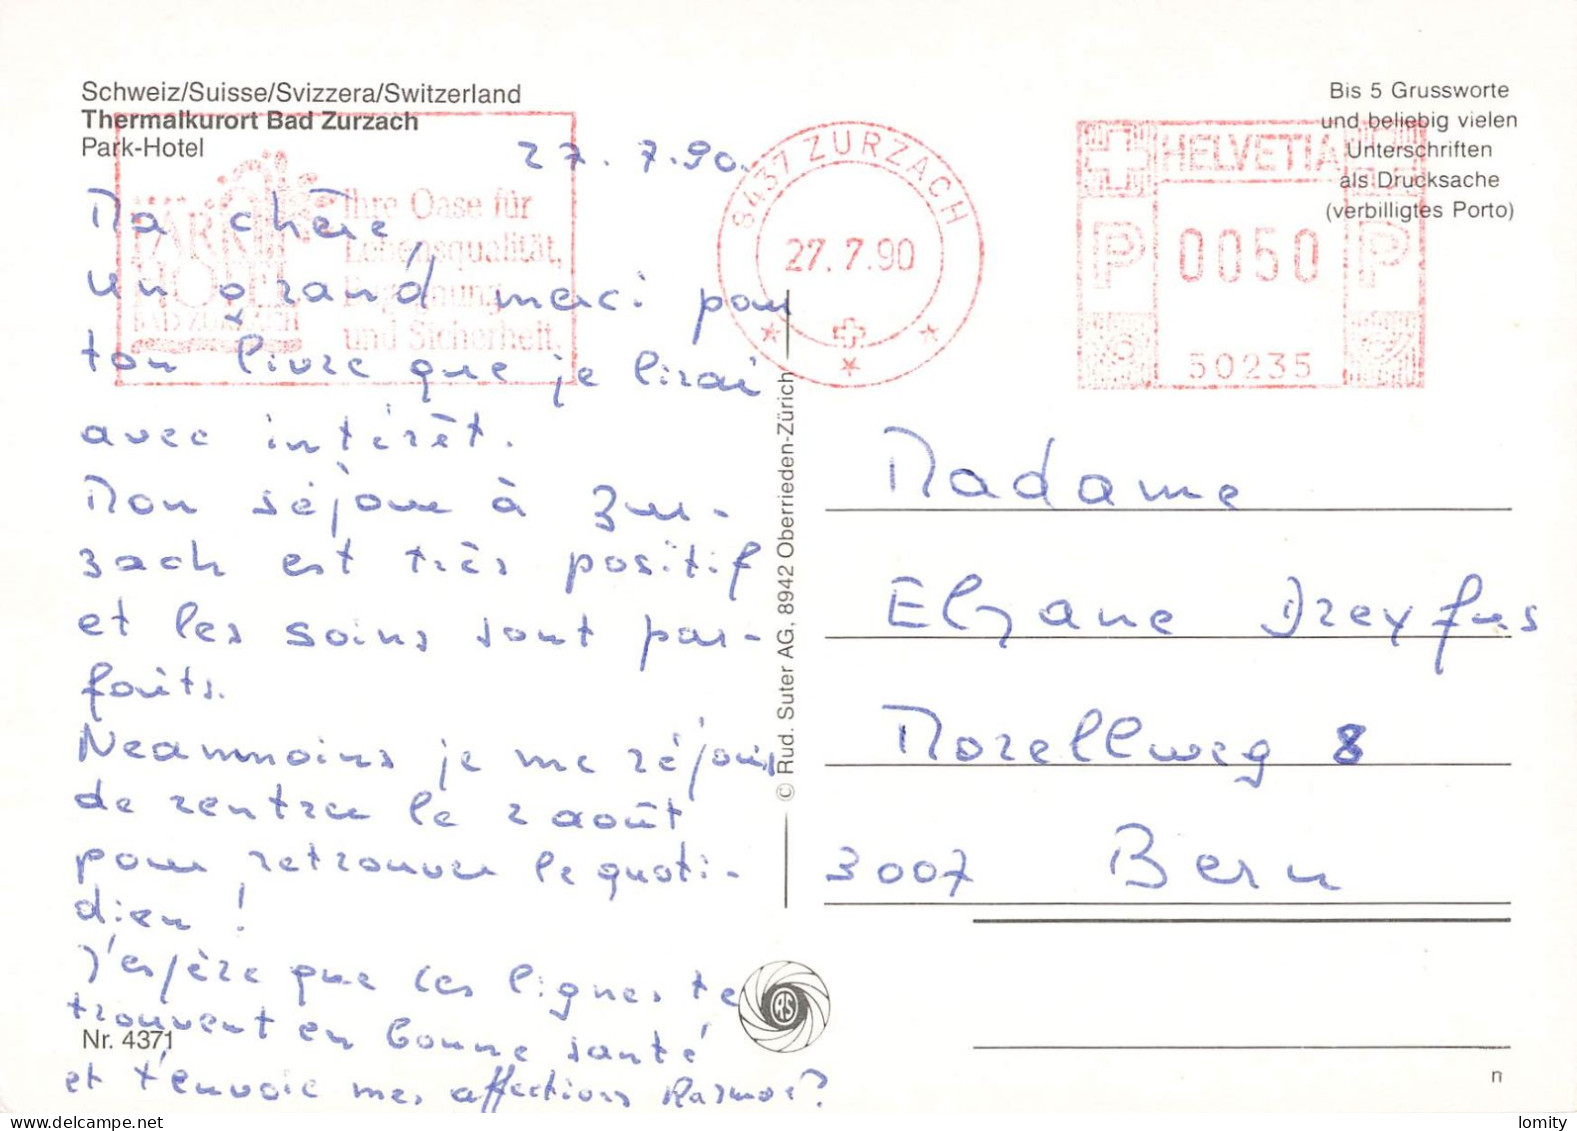 Schweiz/Suisse/Svizzera/Switzerland
Thermalkurort Bad Zurzach
Park-Hotel
Bis 5 Grussworte
und beliebig vielen
Unterschriften
als Drucksache
(verbilligtes Porto)
PARK
HOTEL
BAD ZURZACH
Ihre Oase für
Lebensqualität,
und Sicherheit.
8437 ZURZACH
27.7.90
HELVETIA
P 0050 P
50235
27.7.90.
Ma chère,
un grand merci pour
ton livre que je lirai
avec intérêt.
Mon séjour à Zur-
zach est très positif
et les soins sont par-
faits.
Neamnoins je me réjouis
de rentrer le 2 août
pour retrouver le quoti-
dien !
J'espère que ces lignes te
trouvent en bonne santé
et t'envoie mes affections
Madame
Elyane Dreyfus
Morellweg 8
3007 Bern
© Rud. Suter AG, 8942 Oberrieden-Zürich
RS
Nr. 4371
n
lomity